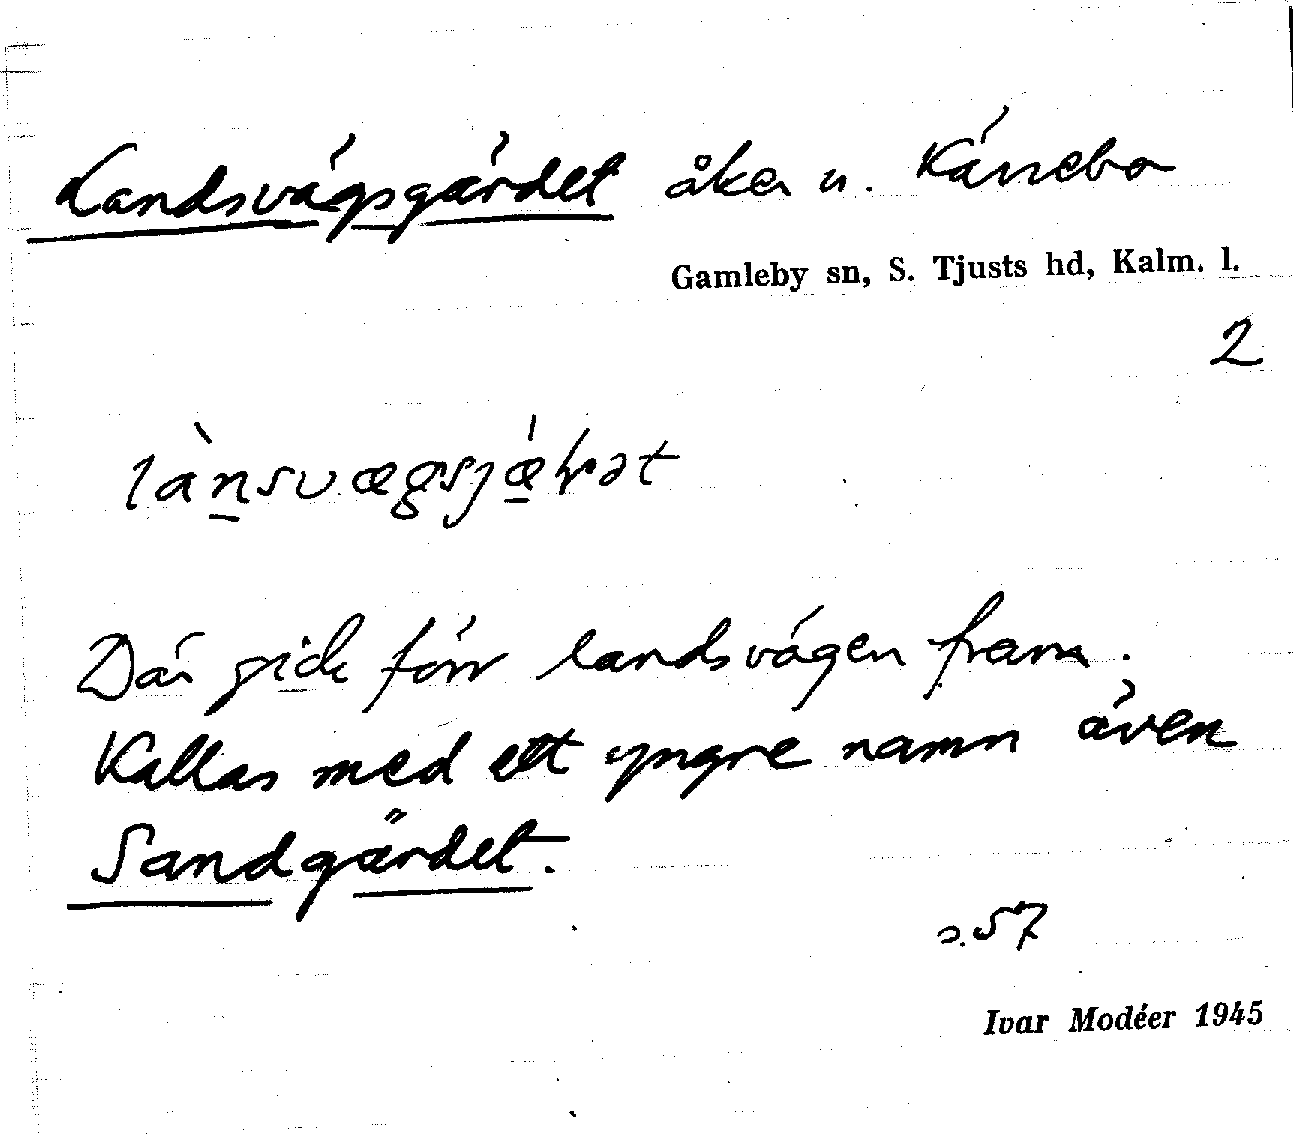 Landsvägsgärdet åker u. Känebo
Gamleby sn, S. Tjusts hd, Kalm. l.
2
Där gick förr landsvägen fram.
Kallas med ett yngre namn även
Sandgärdet.
s. 57
Ivar Modéer 1945